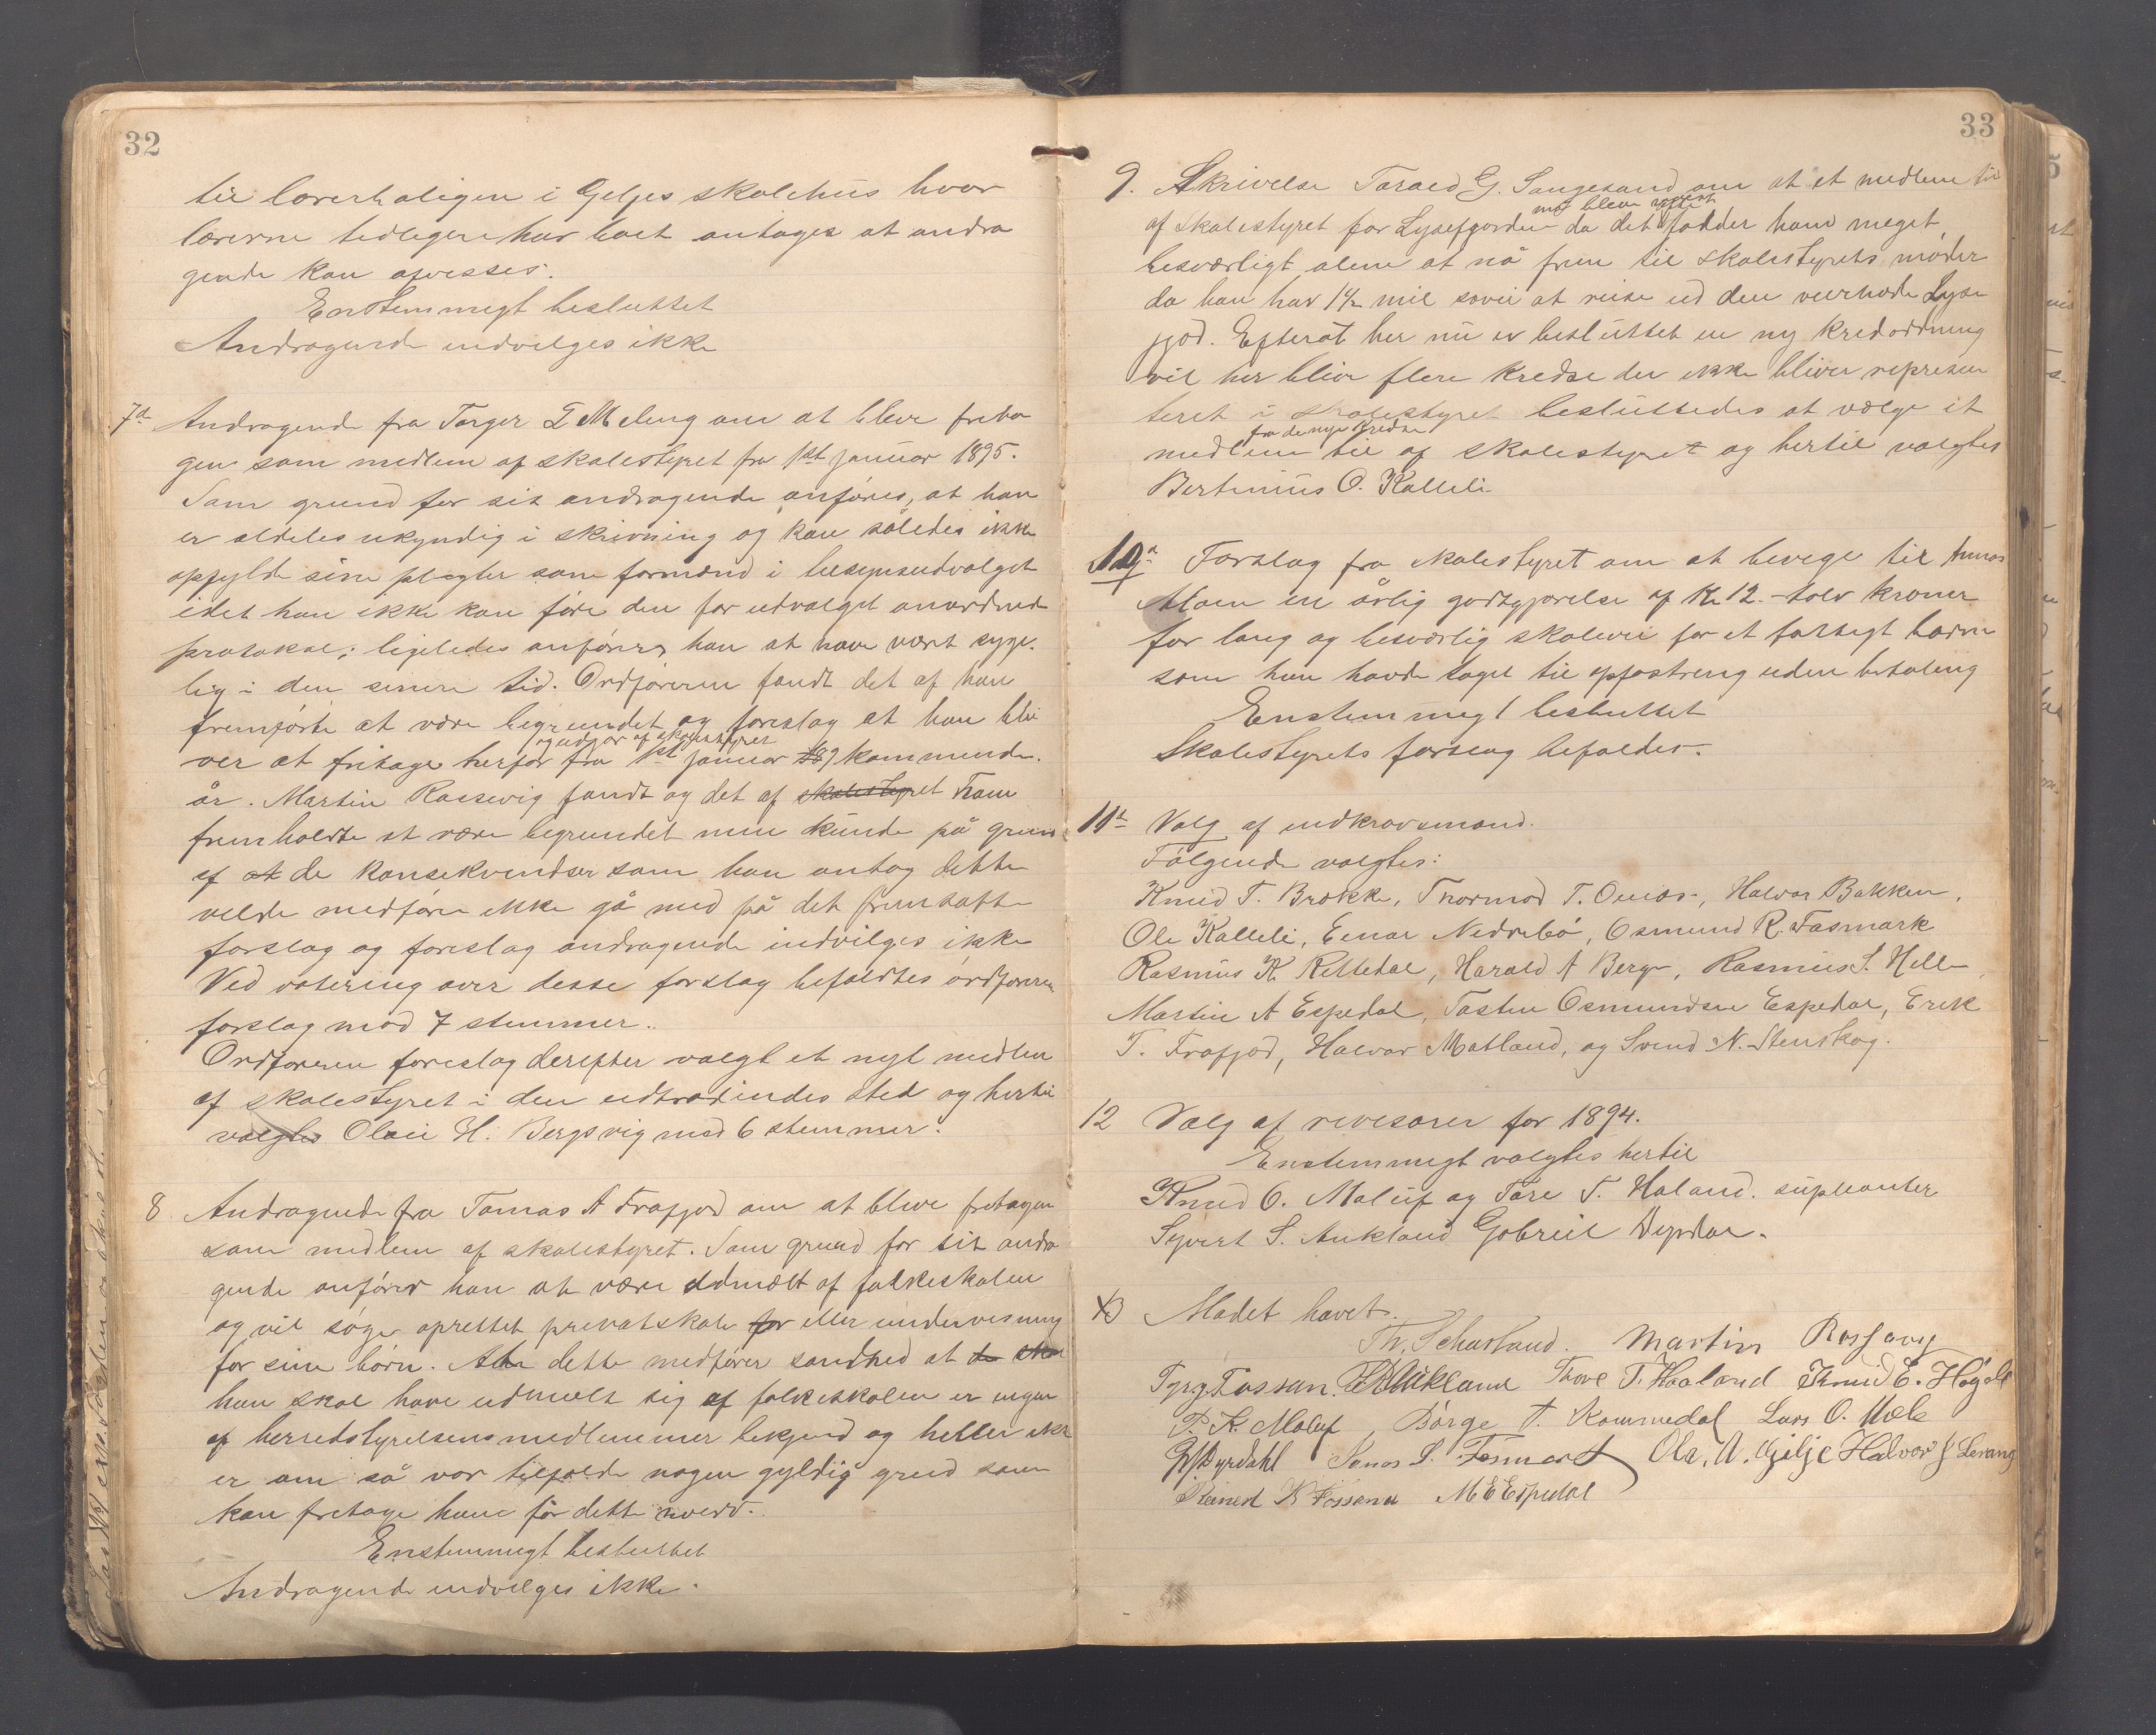 32
til lærerboligen i Giljes skolehus hvor
lærerne tidligere har boet antages at andra
gende kan afvises.
Enstemmigt besluttet
Andragende indvilges ikke
7de Andragende fra Torger T Meling om at blive frita
gen som medlem af skolestyret fra 1st januar 1895.
Som grund for sit andragende anføres, at han
er aldeles ukyndig i skrivning og kan således ikke
opfylde sine pligter som formand i tilsynsudvalget
idet han ikke kan føre den for udvalget anordnede
protokol; ligeledes anfører han at have vært syge-
lig i den senere tid. Ordføreren fandt det af han
fremførte at være begrundet og foreslog at han bli
og udgår af skolestyret
ver at fritage herfor fra 1st januar kommende
år. Martin Rossevig fandt og det af skolestyret ham
fremholdte at være begrundet men kunde på grund
af at de konsekvendser som han antog dette
vilde medføre ikke gå med på det fremsatte
forslag og foreslog andragende indvilges ikke
Ved votering over disse forslag befaldtes ordføreren
forslag mod 7 stemmer.
Ordføreren foreslog derefter valgt et nyt medlem
af skolestyret i den udtrædendes sted og hertil
valgtes Olai H. Bergsvig med 6 stemmer.
8 Andragende fra Tomas A Frafjord om at blive fritagen
som medlem af skolestyret. Som grund for sit andra
gende anfører han at være udmeldt af folkeskolen
og vil søge oprettet privatskole for eller undervisning
for sine børn. Alle dette medfører sandhed at de skal
han skal have udmeldt sig af folkeskolen er ingen
af herredstyrelsens medlemmer bekjend og heller ikke
er om så var tilfælde nogen gyldig grund som
kan fritage ham for dette hverv.
Enstemmigt besluttet
Andragende indvilges ikke.
33
9. Skrivelse Tarald G. Songesand om at et medlem til
må blive valgt
af skolestyret for Lysefjorden da det falder ham meget
besværligt alene at nå frem til skolestyrets møder
da han har 1½ mil sovei at reise ud den veirhårde Lyse
fjod. Efterat her nu er besluttet en ny kredsordning
vil her blive flere kredse der ikke bliver represen
teret i skolestyret besluttedes at vælge et
for de nye kredse
medlem til af skolestyret og hertil valgtes
Bertinius O. Kalleli
10de Forslag fra skolestyret om at bevege til Annas
Moen en årlig godtgjørelse af Kr 12.- tolv kroner
for lang og besværlig skolevei for et fattigt barn
som han havde taget til opfostring uden betaling
Enstemmigt besluttet
Skolestyrets forslag befaldes.
11te Valg af indkravsmænd.
Følgende valgtes:
Knud T. Brække, Tormod T. Oaas, Halvor Bakken,
Ole Kalleli, Einar Nedrebø, Osmund R. Fasmark
Rasmus K. Rettedal, Harald A Berge, Rasmus S. Helle,
Martin A Espedal, Tosten Osmundsen Espedal, Erik
T. Frafjod, Halvor Matland, og Svend N. Stenskog.
12 Valg af revisorer for 1894.
Enstemmigt valgtes hertil
Knud O. Maluf og Tore T. Haland. supleanter
Syvert S. Aukland Gabriel Dyrdal.
13 Mødet hævet.
Th. Scharland. Martin Rossavig
Fossan. Aukland Thore T. Haaland Knud E. Høgeli
P. K. Maluf Børge T. Kommedal Lars O. Mæle
Dyrdahl Jonas S. Ola. A. Gilje Halvor J Levang
Reinert K Fossane M E Espedal